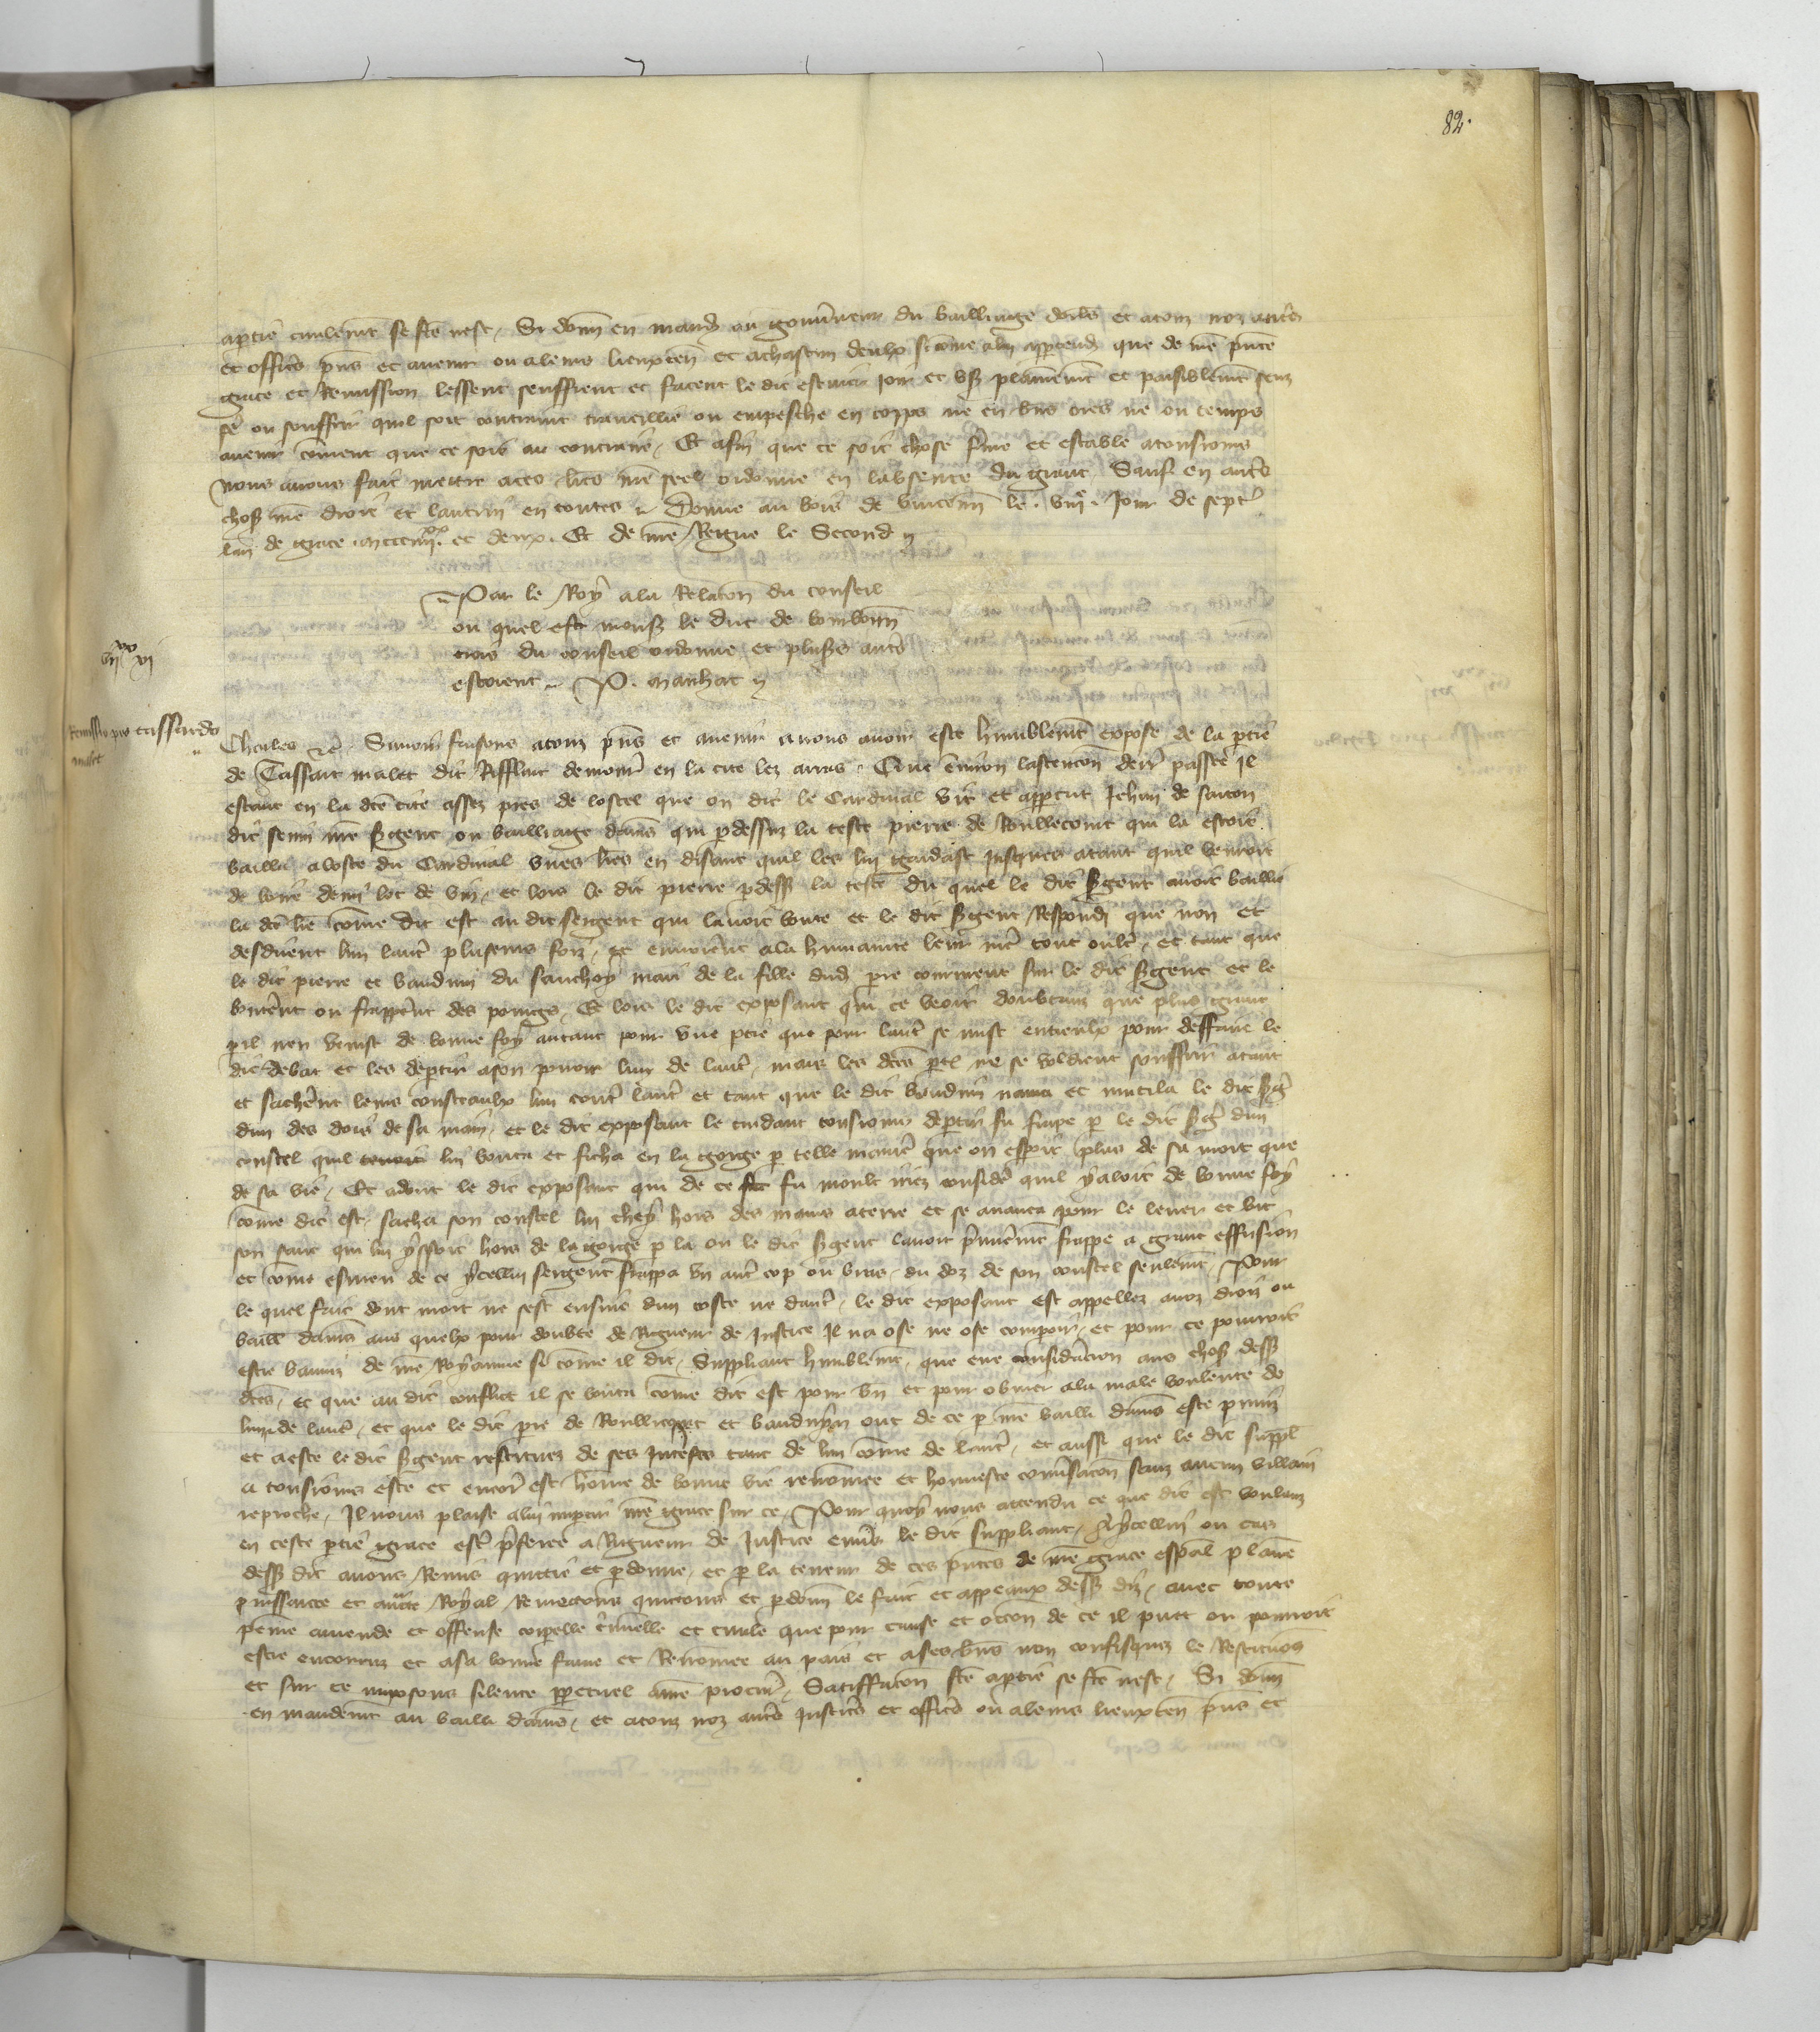 82.
aptie civilemt se fte nest. Si donn en mand au gouverneur du bailliage dorls et atous noz autrs
et offics pns et avenir ou aleurs lieuxten et achascun deulx si come alui appartendra que de nre pnte
grace et Remission lessent seuffrent et facent le dit joir et user plainemt et paisiblemt senz
ou souffrir quil soit contraint travellie ou empesche en corps ne en biens ores ne ou temps
avenir coment que ce soit au contraire. Et afin que ce soit chose ferme et estable atousiours
Nous avons fait mettre aces lres nre seel ordonne en labsence du grant. Sauf en autrs
choses nre droit et lautrui en toutes. Donne au bois de vincenn le viije jour de sept
lan de grace mccciiijxx et deux. Et de nre Regne le Second
Par le Roy ala Relacon du conseil
ou quel estoit monss le duc de bourbonn
du conseil ordonne et pluss autrs
estoient. P. manhac
vijxx xj
Remissio pro tassardo
malet
Charles etc. Savoir faisons atous pns et avenir anous avoir este humblemt expose de la partie
de Tassart malet dit Rifflart demour en la cite lez arras. Que environ lascencon derr passee Il
estant en la dce cite assez pres de lostel que on dit le Cardinal vit et appcut Jehan de
dit nre sgent ou bailliage damiens qui pdessuz la teste pierre de Roullecourt qui la estoit
bailla aloste du Cardinal unes lres en disant quil les lui gardast jusques atant quil venroit
de boire demi lot de vin, et lors le dit pierre pdess la teste du quel le dit sgent avoit baillie
la dce lre come dit est au dit sergent qui lavoit boute et le dit sgent Respondi que non et
desdirent lun lautr plusieurs foiz, et tout oultr, et tant que
le dit pierre et bauduin du sauchoy mari de la fille dud pre coururent sur le dit sgent et le
bouterent ou frapperent des poings. Et lors le dit exposant qui ce veoit doubtant que plus grant
pil nen venist de bonne foy autant pour une ptie que pour lautr se mist entreulx pour deffaire le
dit debat et les departir ason povoir lun de lautr, mais les dces pties ne se voldrent souffrir atant
et sacherent leurs cousteaulx lun contr lautr et tant que le dit baudun navra et mutila le dit sgt
dun des dois de sa main, et le dit exposant le cuidant tousiours departir fu frape p le dit sgt dun
coustel quil tenoit lui bouta et ficha en la gorge p telle maniere que on espoir plus de sa mort que
de sa vie. Et adont le dit exposant qui de ce fu moult iriez considere quil yaloit de bonne foy
come dit est, sacha son coustel lui chey hors des mains aterre et se avanca pour le lever et vit
son sanc qui lui yssoit hors de la gorge p la ou le dit sgent lavoit premierement frappe a grant effusion
et come esmeu de ce ycellui sergent frappa un autr cop ou bras, du doz de son coustel seulemt, Pour
le quel fait dont mort ne sest ensuie dun coste ne dautr, le dit exposant est appellez a noz droiz ou
baill damiens aus quelx pour doubte de Rigueur de Justice Il na ose ne ose comparoir, et pour ce pourroit
estre banniz de nre Royaume si come il dit, Suppliant humblemt, que eue consideracion aus choses dess
dces, et que au dit conflict il se bouta come dit est pour bn et pour obvier ala male voulente de
lun de lautr, et que le dit pre de Roullecourt et bauduyn ont de ce p nre bailli damiens este puniz
et aeste le dit sgent restituez de ses interestz tant de lun come de lautr, et aussi que le dit suppl
a tousiours este et encor est home de bonne vie renomee et honneste conversacon sanz aucun villain
reproche, Il nous plaise alui impartir nre grace sur ce. Pour quoy nous attendu ce que dit est voulans
en ceste ptie grace estr preferee a Rigueur de Justice envs le dit suppliant, A ycellui ou cas
dess dit avons Remis quittie et pdonne, et p la teneur de ces pntes de nre grace espal plaine
puissance et auctte Royal Remettons quittons et pdonn le fait et appeaux dess diz, avec toute
peine amende et offense corporelle criminelle et civile que pour cause et occon de ce il puet ou pourroit
estre encouruz et asa bonne fame et Renomee au pais et ases biens non confisquez le Restituons
et sur ce imposons silence perpetuel anre procur, Satiffacon fte aptie se fte nest. Si donn
en mandemt au bailli damiens, et atous noz autrs Justicrs et officrs ou aleurs lieuxten pns et